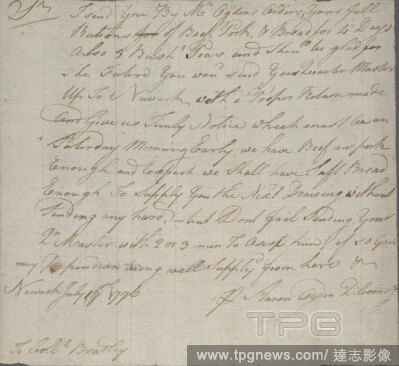 Sir
I send You By Mr Ogdens Orders, Yours full
Rations of Beef Pork, & Bread for 4 Days
Also 3 Bushl Peas and Shall be glad for
the Future You woud send Your Quarter Master
Up To Newark, with a Proper Return made
And Give us Timly Notice which must be on
Saturday Morning Early we have Beef and pork
Enough and Expect we Shall have Soft Bread
Enough To Supply You the Next Drawing without
Sending any hard, - but Dont fail Sending Your
Qr Master with 2 or 3 men To Assist him, if so You
may Depend on being well Supply'd from here
Newark July 1776
Aaron Ogden D. Comy
To Colo.
TPG
www.tpgnews.com | 達志影像